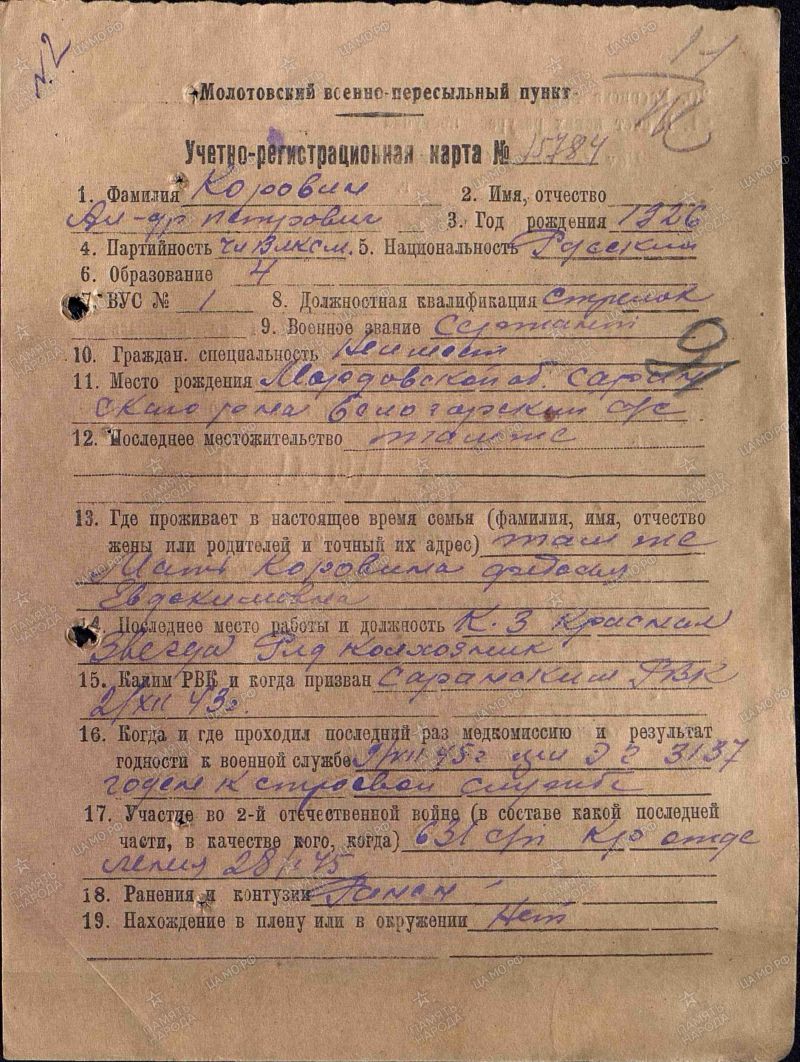 N.2
17
Молотовский военно-пересыльный пункт
Учетно-регистрационная карта № 15784
1. Фамилия Коровин 2. Имя, отчество
Ал-др петрович 3. Год рождения 1926
4. Партийность чл Влксм. 5. Национальность Русский
6. Образование 4
7. ВУС № 1 8. Должностная квалификация стрелок
9. Военное звание Сержант
10. Граждан. специальность Не имеет
11. Место рождения Мордовской об. саран
ского р-на Белогорский с/с
12. Последнее местожительство там же
13. Где проживает в настоящее время семья (фамилия, имя, отчество
жены или родителей и точный их адрес) там же
Мать Коровина
Евдокимовна
14. Последнее место работы и должность К-З Красная
Звезда Ряд колхозник
15. Каким РВК и когда призван Саранским РВК
2/XII 43г.
16. Когда и где проходил последний раз медкомиссию и результат
годности к военной службе 9/XII 45г при Э Г 3137
годен к строевой службе
17. Участие во 2-й отечественной войне (в составе какой последней
части, в качестве кого, когда) 631 с/п отде
ления 45
18. Ранения и контузии Ранен
19. Нахождение в плену или в окружении Нет
ПАМЯТЬ НАРОДА
ЦАМО.РФ